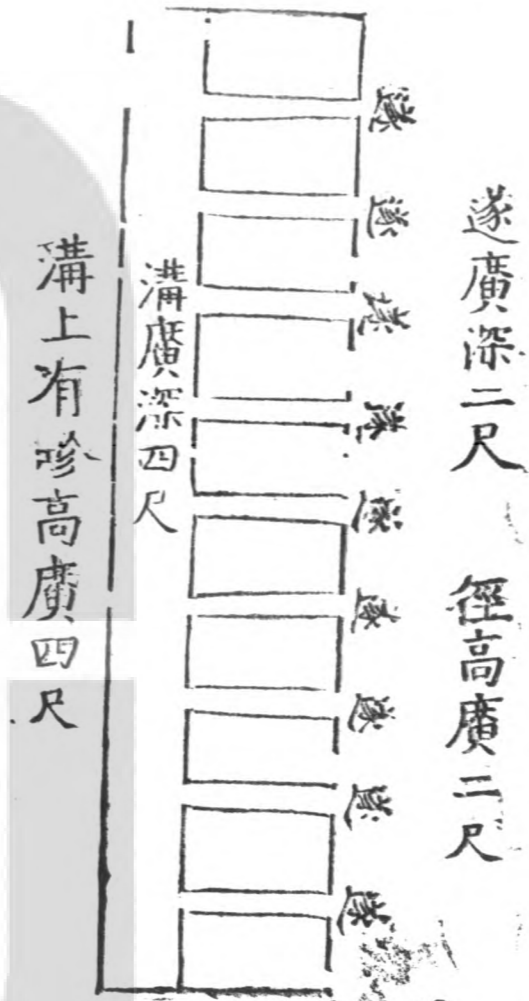 遂廣深二尺
徑高廣二尺
遂
遂
遂
遂
遂
遂
遂
遂
遂
溝廣深四尺
溝上有畛高廣四尺